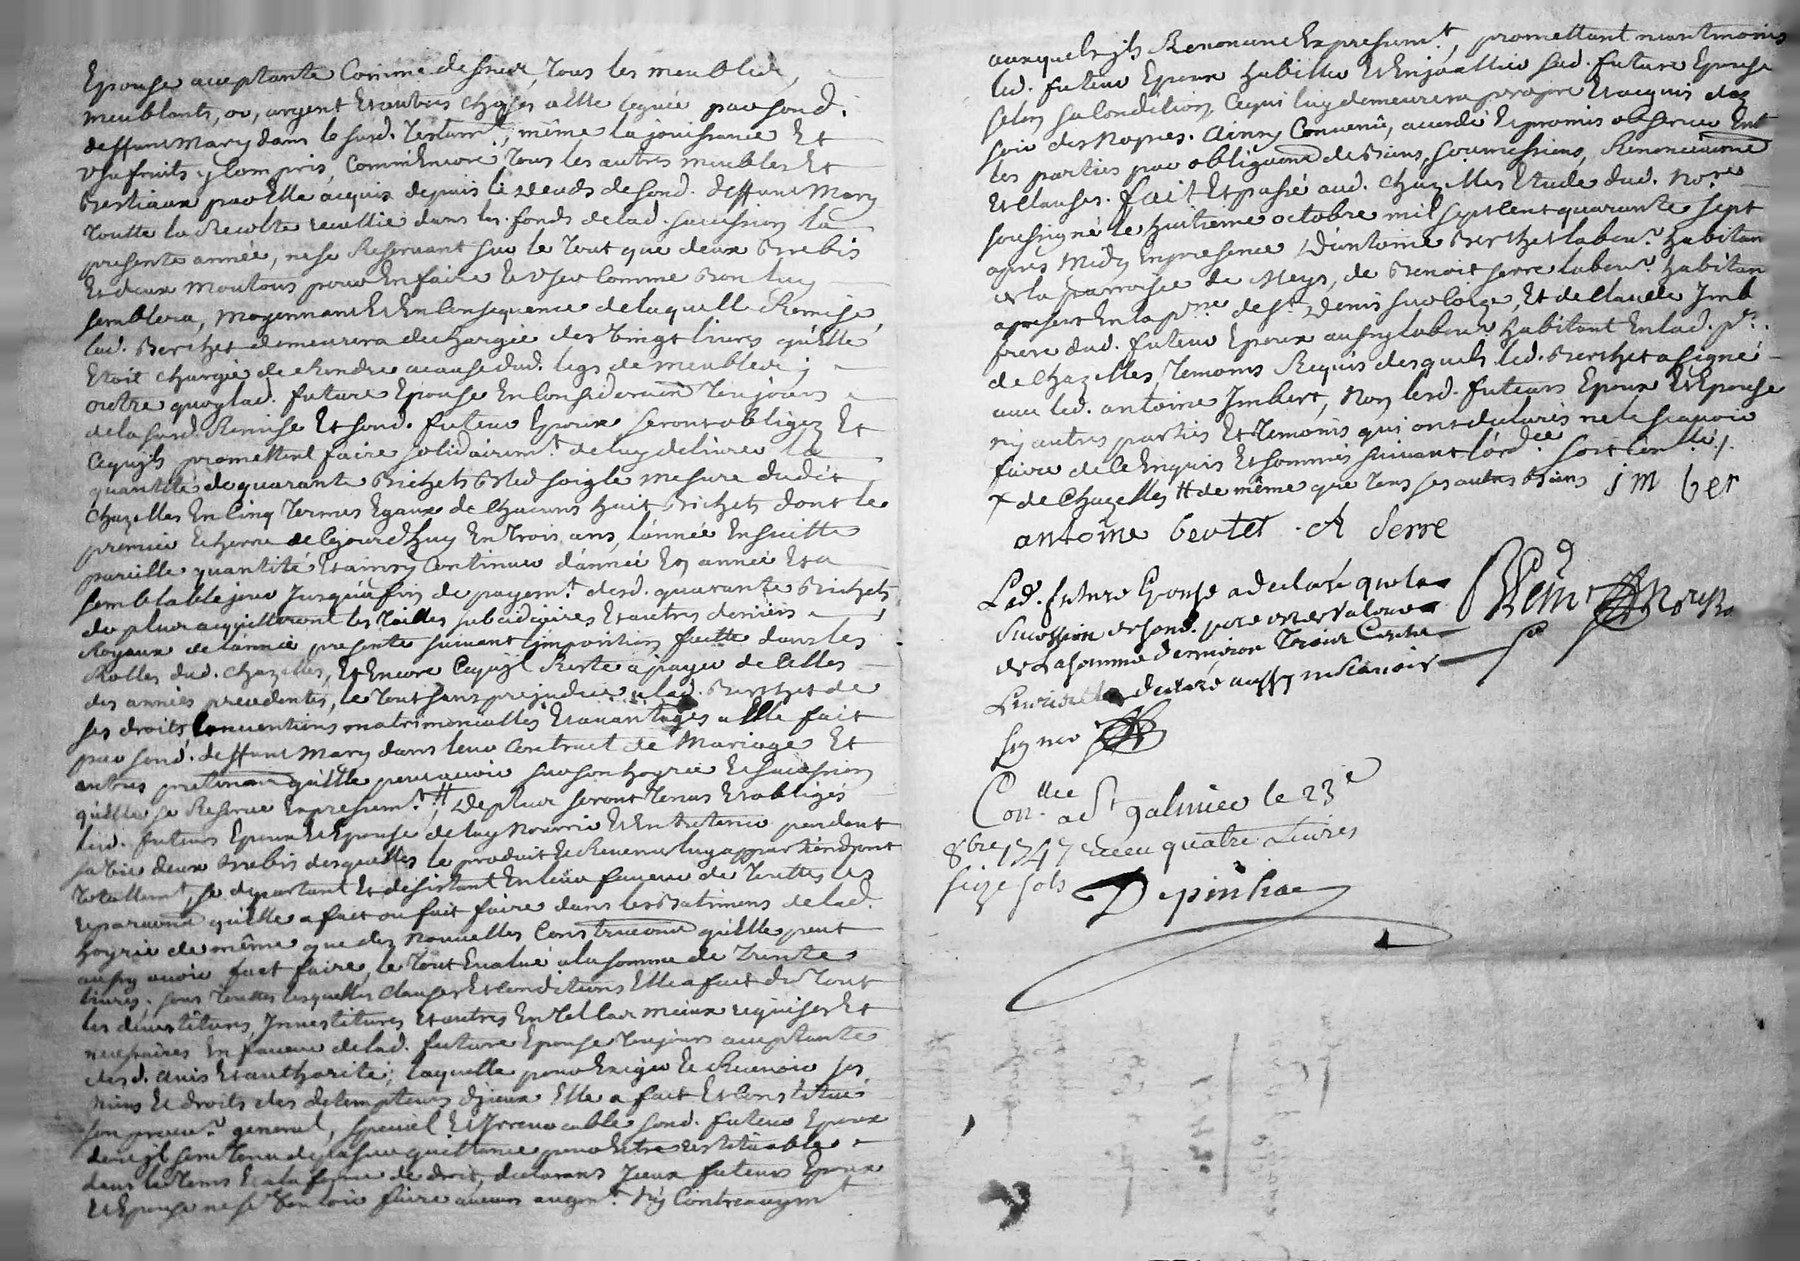 Epouse aceptante Comme dessus, Tous les meubles,
meublants, or, argent Et autres choses a Elle leguée par sond.
deffunt Mary dans le susd. Testamt, même la jouissance Et
Usufruits y Compris, Comm'Encore Tous les autres meubles Et
Bestiaux par Elle acquis depuis le deceds de sond. deffunt Mary
Toutte la Recolte ceuillie dans les fonds de lad. sucession la
presente année, ne se Reservant sur le Tout que deux Brebis
Et deux moutons pour En faire Et User Comme Bon luy
semblera, moyennant Et En Consequence de laquelle Remise,
lad. Berchet demeurera dechargée des Vingt livres qu'Elle
Etoit chargée de Rendre a cause dud. legs de meubles;
outre quoy lad. future Epouse En Consideration Toujours
de la susd. Remise Et sond. futeur Epoux seront obligez Et
Cequ'jls promettent faire solidairemt. de luy delivrer la
quantité de quarante Bichets Bled soigle mesure dudit
Chazelles En Cinq Termes Egaux de Chacuns huit Bichets dont le
premier Echerra de Cejourd'huy En Trois ans, l'année Ensuitte
pareille quantité Et ainsy Continuer d'année En année Et a
semblable jour Jusqu'a fin de payemt. desd. quarante Bichets,
de plus acquitteront les Tailles subcidiaires Et autres deniers
Royaux de l'année presente suivant l'imposition faitte dans les
Rolles dud. Chazelles, Et Encore Cequ'jl Reste a payer de Celles
des années precedentes, le Tout sans prejudice a lad. Berchet de
ses droits, Conventions matrimonialles Et avantages a Elle fait
par sond. deffunt Mary dans leur Contract de Mariage Et
autres pretentions qu'Elle peut avoir sur son hoyrie Et sucession
qu'Elle se Reserve Expressemt. # De plus seront Tenus Et obligés
lesd. futeurs Epoux Et Epouse de luy nourrir Et Entretenir pendant
sa vie deux Brebis desquelles le produit Et Revenu luy appartiendront
Totallemt, se departant Et desistant En leur faveur de Touttes les
reparations qu'Elle a fait ou fait faire dans les Batimens de lad.
hoyrie de même que des nouvelles Constructions qu'Elle peut
aussy avoir fait faire, le Tout Evalué a la somme de Trente
livres. sous Touttes lesquelles Clauses Et Conditions Elle a fait du Tout
les devestitures, Jnvestitures Et autres En Tel Cas mieux requises Et
necessaires En faveur de lad. future Epouse Toujours aceptante
desd. avis Et authorité; laquelle pour Exiger Et Recevoir ses
biens Et droits des detempteurs d'jceux Elle a fait Et Constitué
son procur. general, special Et Jrrevocable sond. futeur Epoux
dans le Tems Et a la forme de droit, declarans Jceux futeurs Epoux
Et Epouse ne se Vouloir faire aucuns augmt. Ny Contreaugmt
auxquels jls Renoncent Expressemt., promettant neantmoins
led. futeur Epoux habiller Et Enjoailler sad. future Epouse
selon sa Condition, Cequi luy demeurera propre Et acquis dez
soir des Nopces. Ainsy Convenu, acordé Et promis observer Entre
les parties par obligations de Biens, soumissions, Renonciations
Et Clauses. fait Et passé aud. Chazelles Etude dud. Nore
soussigné le huitieme octobre mil sept Cent quarante sept
apres Midy En presence d'antoine Berchet labour. habitan
de la parroisse de Meys, de Benoit serre labour. habitan
apresent En la p.sse de st. denis sur Coize, Et de Claude Jmb
frere dud. futeur Epoux aussy labour. habitant En lad. p.
de Chazelles, Temoins Requis desquels led. Berchet a signé
avec led. antoine Jmbert, Non lesd. futeurs Epoux Et Epouse
ny autres parties Et Temoins qui ont declarés ne le scavoir
faire de Ce Enquis Et sommés suivant l'ord.ce soit Controllé ./.
+ de Chazelles # de même que Tous ses autres Biens jm ber
antoine bertet . A Serre
Lad. future Epouse a declaré que la
Sucession de sond. pere est de valeur
de La somme d'environ Trois Cents
Livres Et a declaré aussy ne scavoir
signer
Con.llée a St galmier le 23e
8bre 1747 receu quatre Livres
seize sols Depinhac